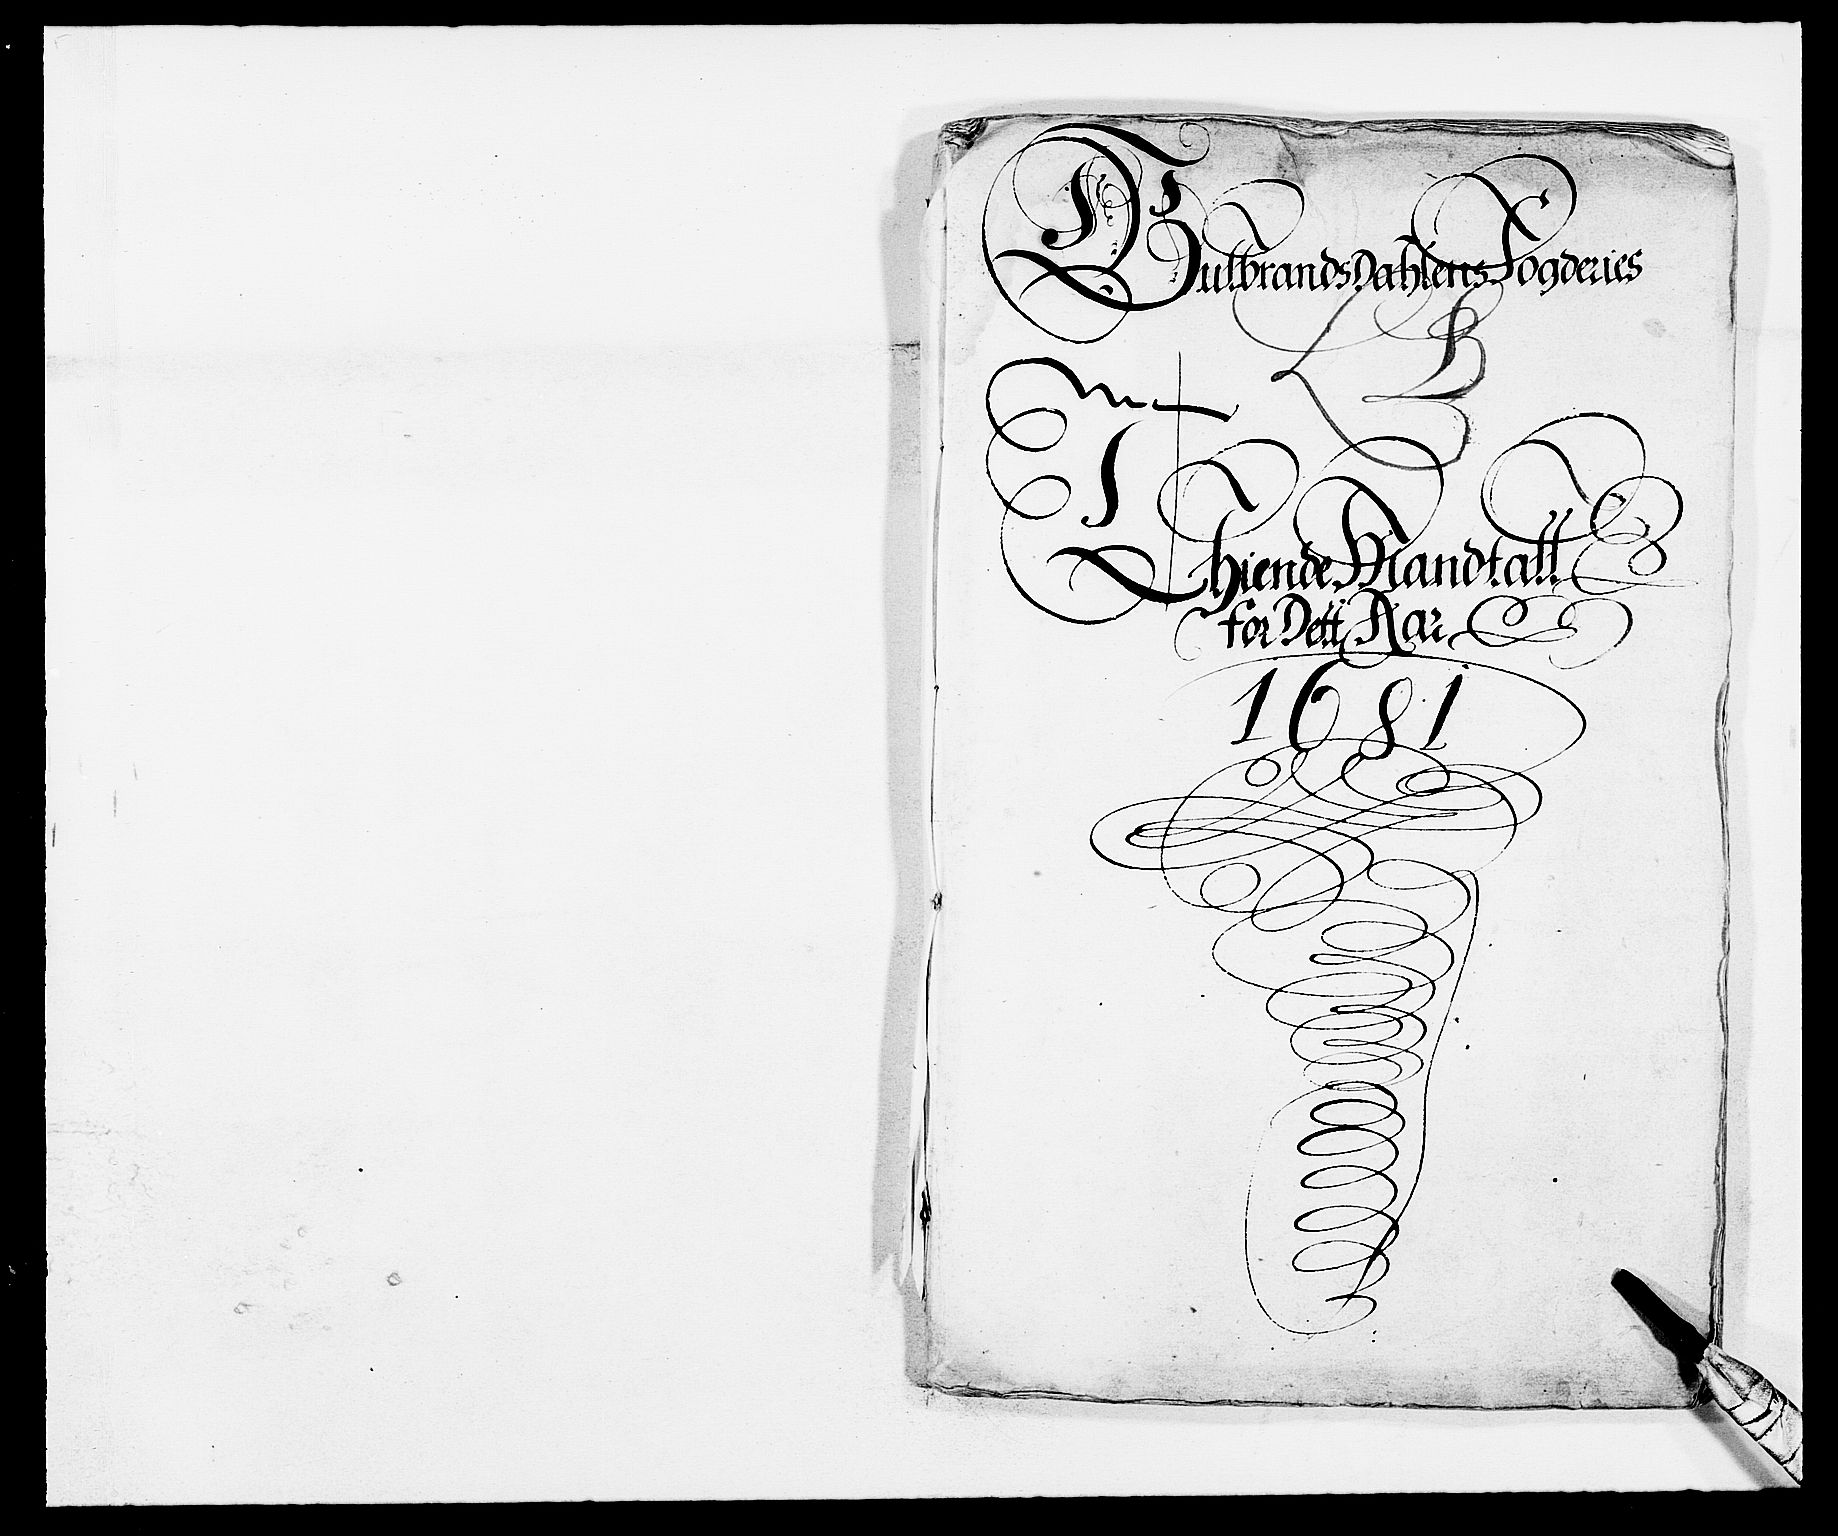 GulbrandsDahlens Fogderies
LB
Thiende Mandtall
for Dett Aar
1681